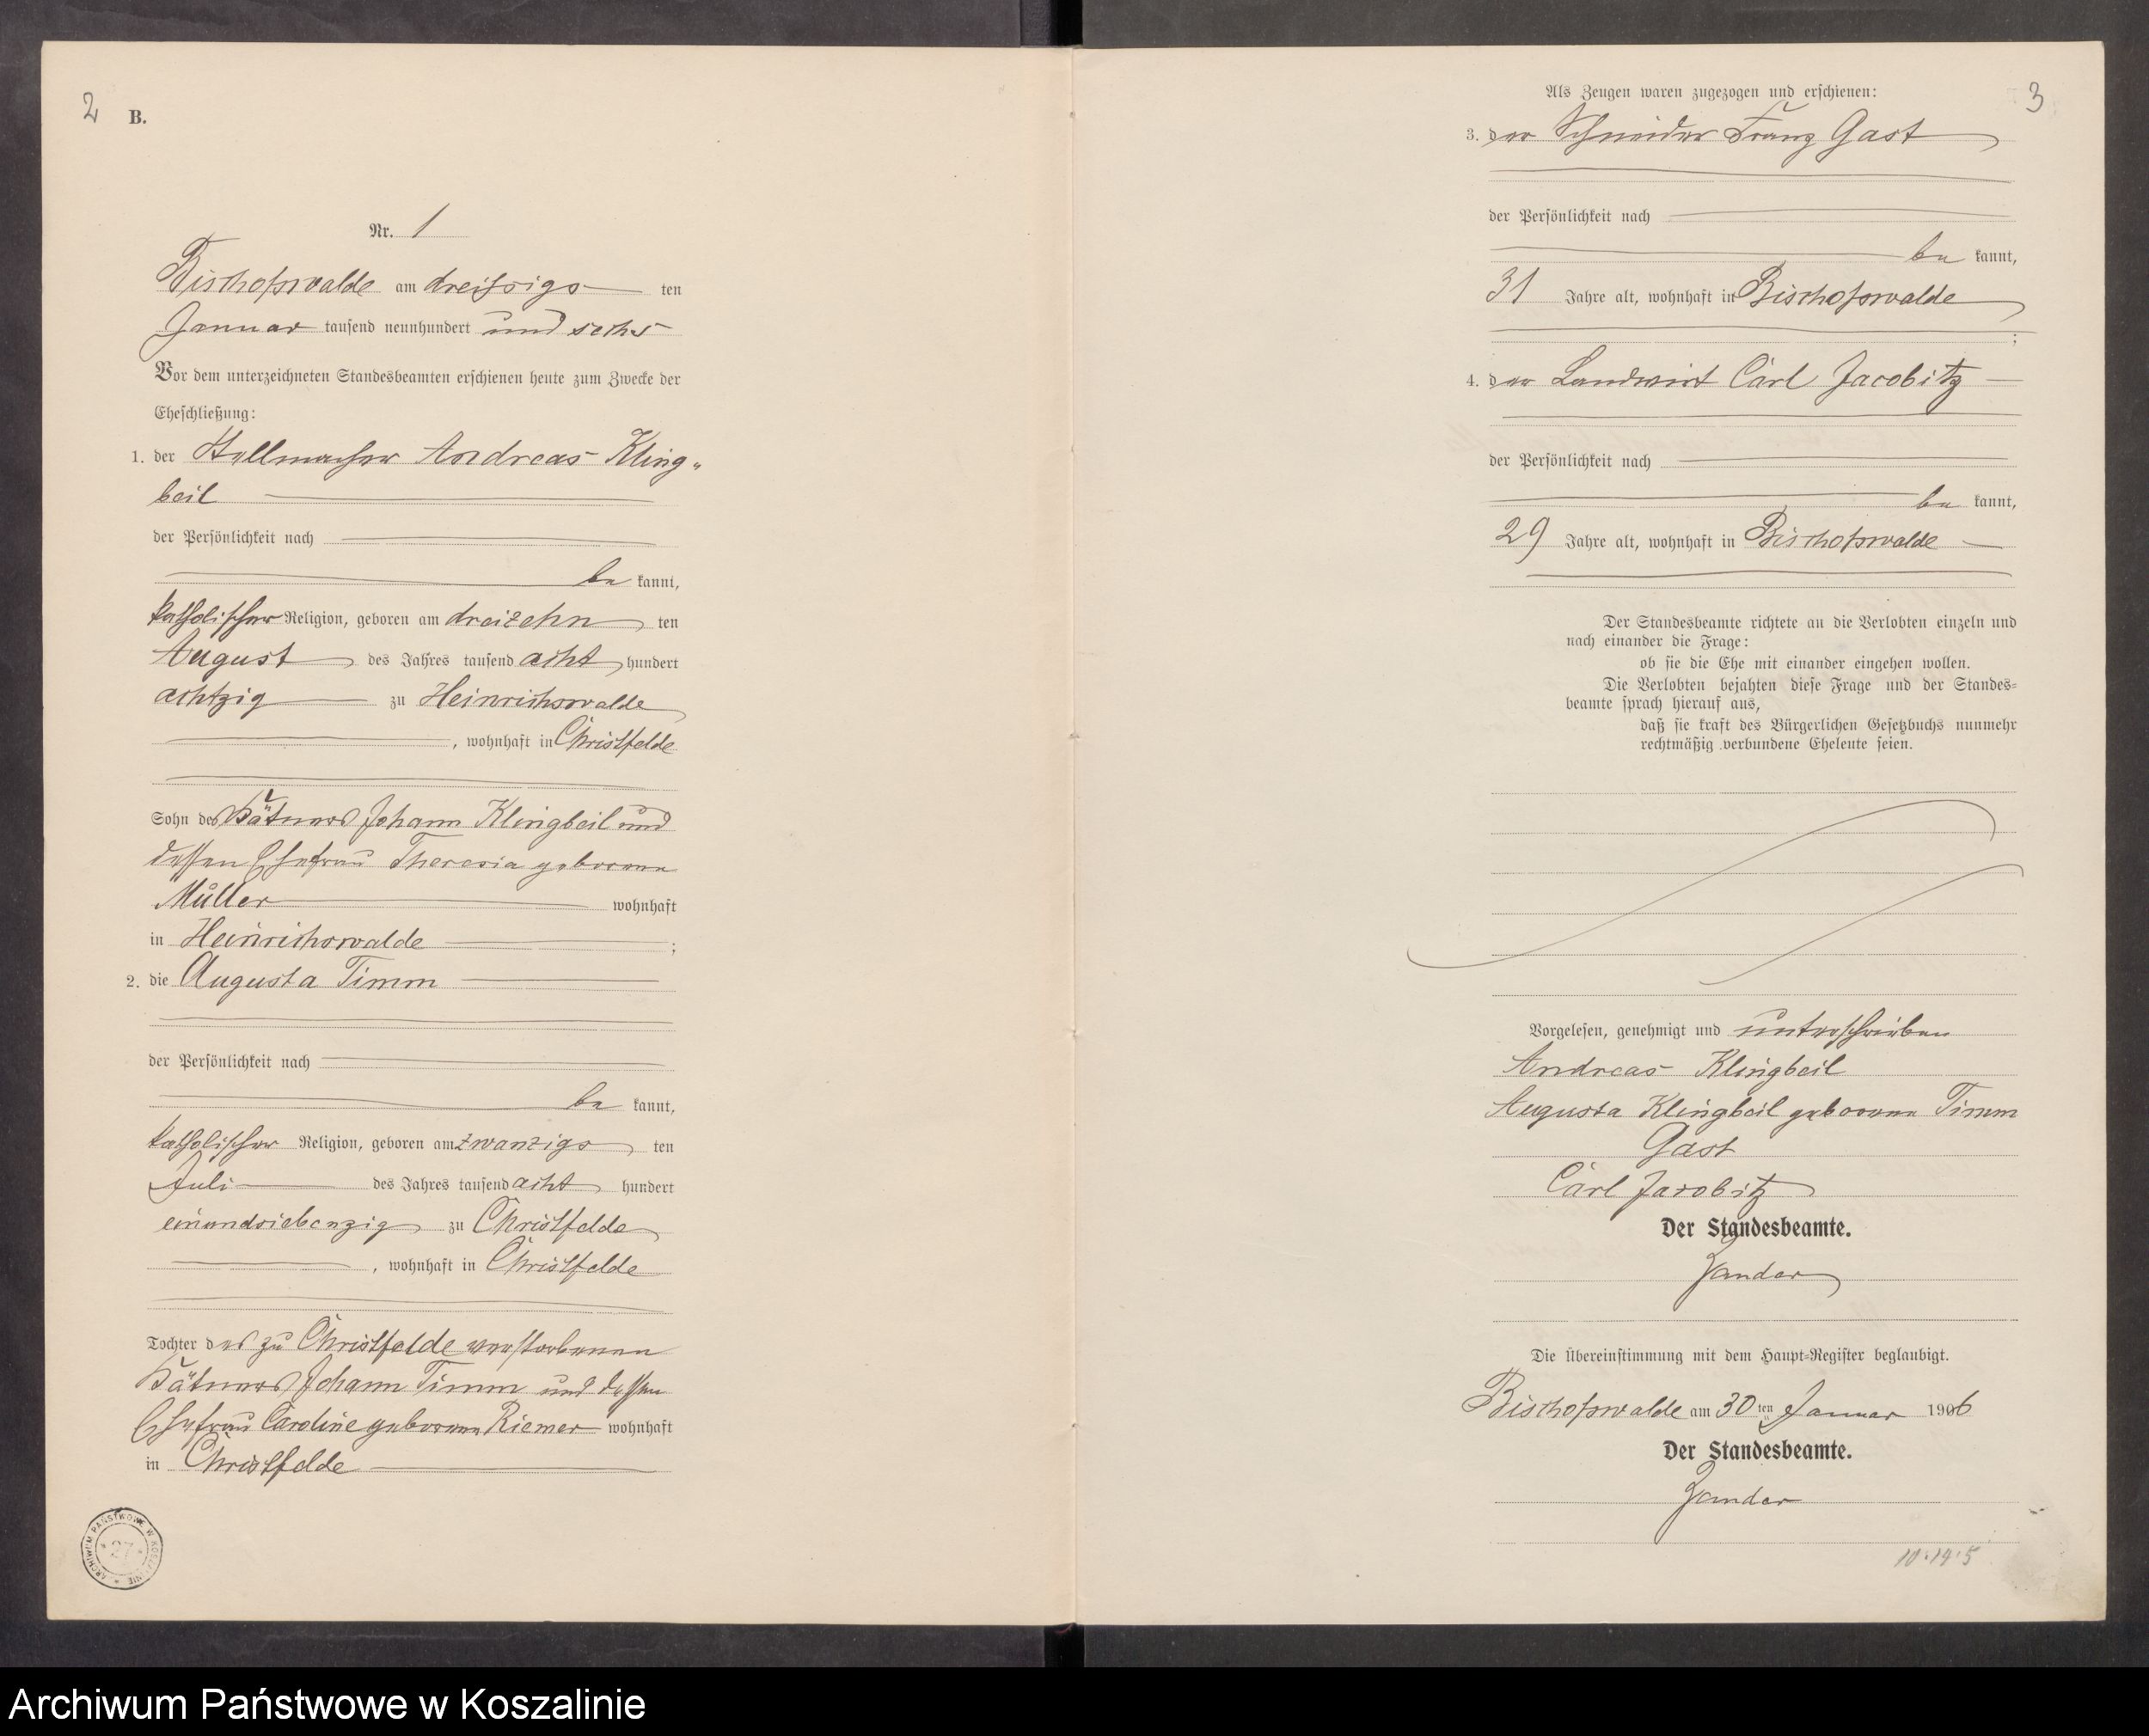 2
B.
Nr. 1
Bischofswalde am dreißigs ten
Januar tausend neunhundert und sechs
Vor dem unterzeichneten Standesbeamten erschienen heute zum Zwecke der
Eheschließung:
1. der Stellmacher Andreas Kling„
beil
der Persönlichkeit nach
be kannt,
katholischer Religion, geboren am dreizehn ten
August des Jahres tausend acht hundert
achtzig zu Heinrichswalde
, wohnhaft in Christfelde
Sohn des Kätners Johann Klingbeil und
dessen Ehefrau Theresia geborene
Müller wohnhaft
in Heinrichswalde ;
2. die Augusta Timm
der Persönlichkeit nach
be kannt,
katholischer Religion, geboren am zwanzigs ten
Juli des Jahres tausend acht hundert
einundsiebenzig zu Christfelde
, wohnhaft in Christfelde
Tochter des zu Christfelde verstorbenen
Kätners Johann Timm und dessen
Ehefrau Caroline geborene Riemer wohnhaft
in Christfelde
ARCHIWUM PAŃSTWOWE W KOSZALINIE
27
3
Als Zeugen waren zugezogen und erschienen:
3. der Schneider Franz Gast
der Persönlichkeit nach
be kannt,
31 Jahre alt, wohnhaft in Bischofswalde
;
4. der Landwirt Carl Jacobitz
der Persönlichkeit nach
be kannt,
29 Jahre alt, wohnhaft in Bischofswalde
Der Standesbeamte richtete an die Verlobten einzeln und
nach einander die Frage:
ob sie die Ehe mit einander eingehen wollen.
Die Verlobten bejahten diese Frage und der Standes=
beamte sprach hierauf aus,
daß sie kraft des Bürgerlichen Gesetzbuchs nunmehr
rechtmäßig verbundene Eheleute seien.
Vorgelesen, genehmigt und unterschrieben
Andreas Klingbeil
Augusta Klingbeil geborene Timm
Gast
Carl Jacobitz
Der Standesbeamte.
Zander
Die Übereinstimmung mit dem Haupt=Register beglaubigt.
Bischofswalde am 30 ten Januar 1906
Der Standesbeamte.
Zander
10.14.5
Archiwum Państwowe w Koszalinie